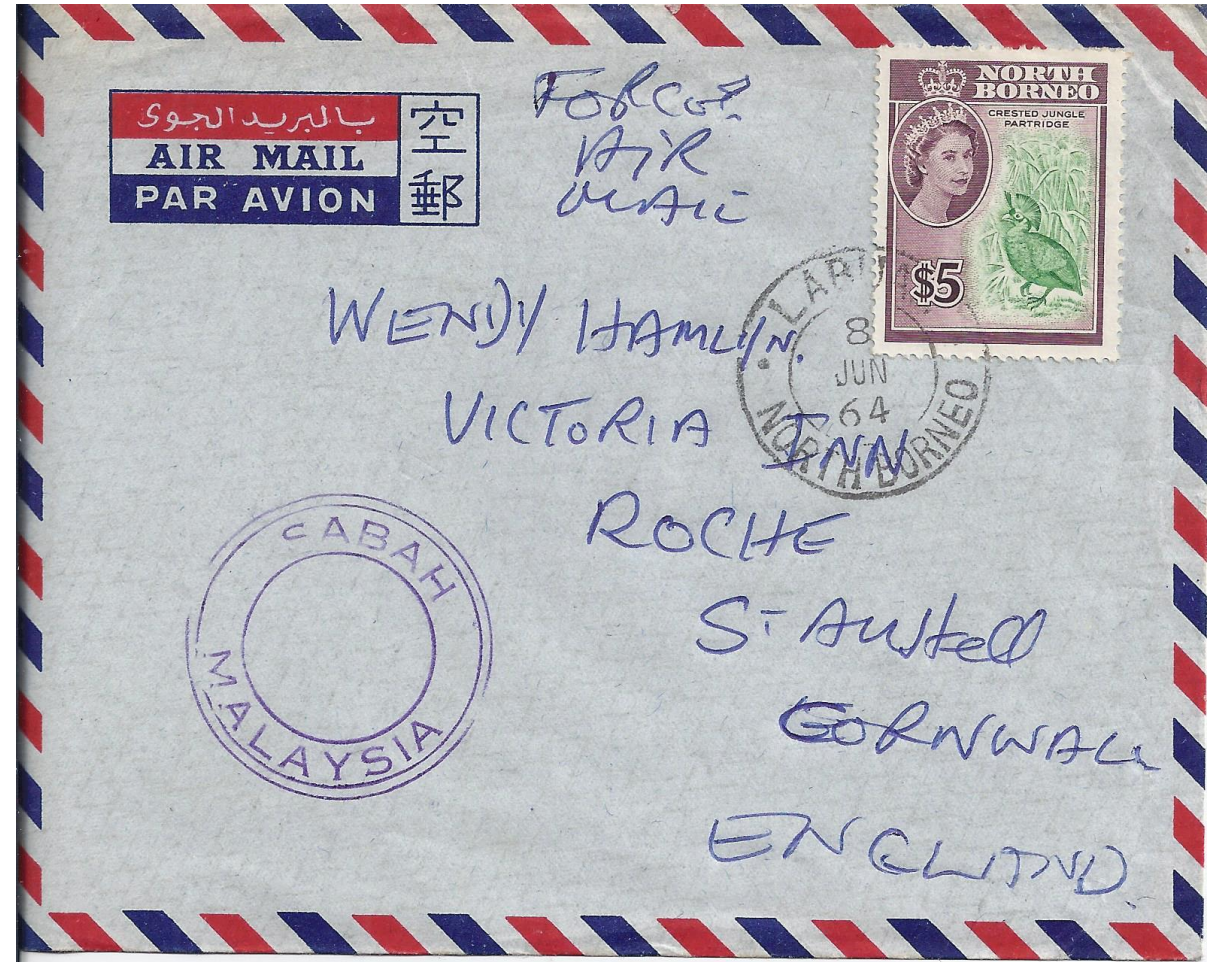 بالبريد الجوى
AIR MAIL
PAR AVION
空
郵
FORCES
AIR
MAIL
NORTH
BORNEO
CRESTED JUNGLE
PARTRIDGE
$5
8
JUN
64
NORTH BORNEO
WENDY HAMLYN.
VICTORIA INN
ROCHE
ST AUSTELL
CORNWALL
ENGLAND.
SABAH
MALAYSIA